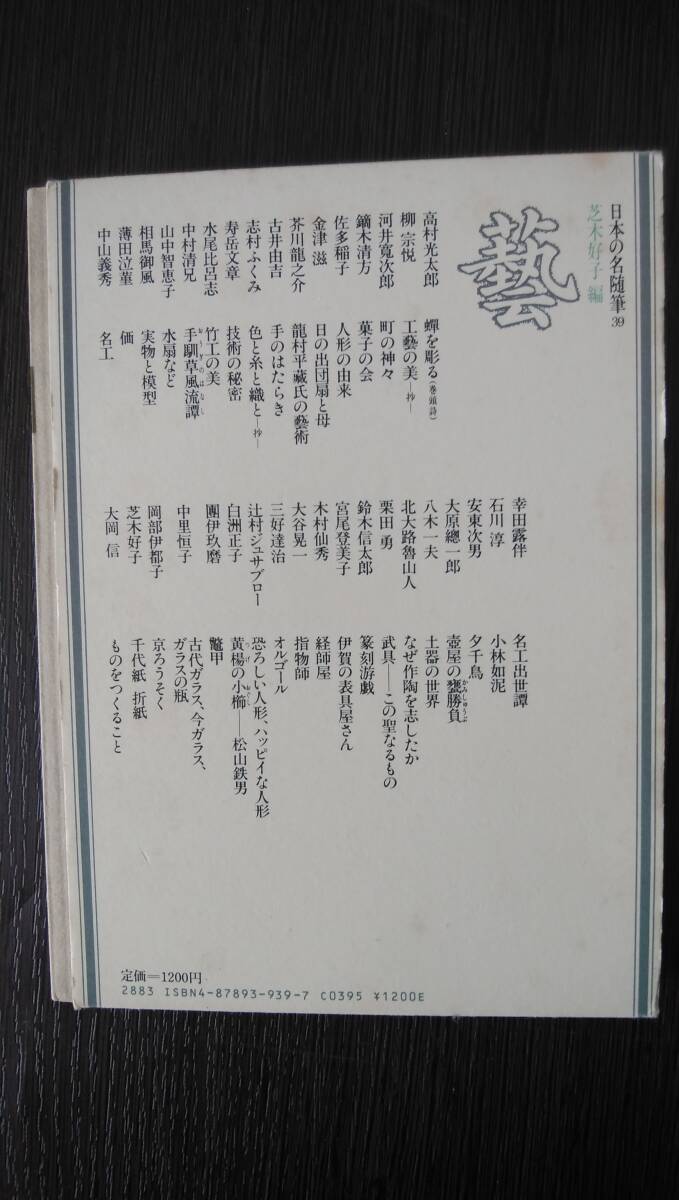 日本の名随筆39
芝木好子 編
藝
高村光太郎 蟬を彫る（巻頭詩）
柳 宗悦 工藝の美―抄―
河井寛次郎 町の神々
鏑木清方 菓子の会
佐多稲子 人形の由来
金津 滋 日の出団扇と母
芥川龍之介 龍村平蔵氏の藝術
古井由吉 手のはたらき
志村ふくみ 色と糸と織と―抄―
寿岳文章 技術の秘密
水尾比呂志 竹工の美
中村清兄 手馴草風流譚
おうぎのはなし
山中智恵子 水扇など
相馬御風 実物と模型
薄田泣菫 価
中山義秀 名工
幸田露伴 名工出世譚
石川 淳 小林如泥
安東次男 夕千鳥
大原總一郎 壺屋の甕勝負
かみしゅうぶ
八木一夫 土器の世界
北大路魯山人 なぜ作陶を志したか
栗田 勇 武具――この聖なるもの
鈴木信太郎 篆刻游戯
宮尾登美子 伊賀の表具屋さん
木村仙秀 経師屋
大谷晃一 指物師
三好達治 オルゴール
辻村ジュサブロー 恐ろしい人形、ハッピイな人形
白洲正子 黄楊の小櫛――松山鉄男
つげ おぐし
團伊玖磨 鼈甲
中里恒子 古代ガラス、今ガラス、
ガラスの瓶
岡部伊都子 京ろうそく
芝木好子 千代紙 折紙
大岡 信 ものをつくること
定価=1200円
2883 ISBN4-87893-939-7 C0395 ¥1200E